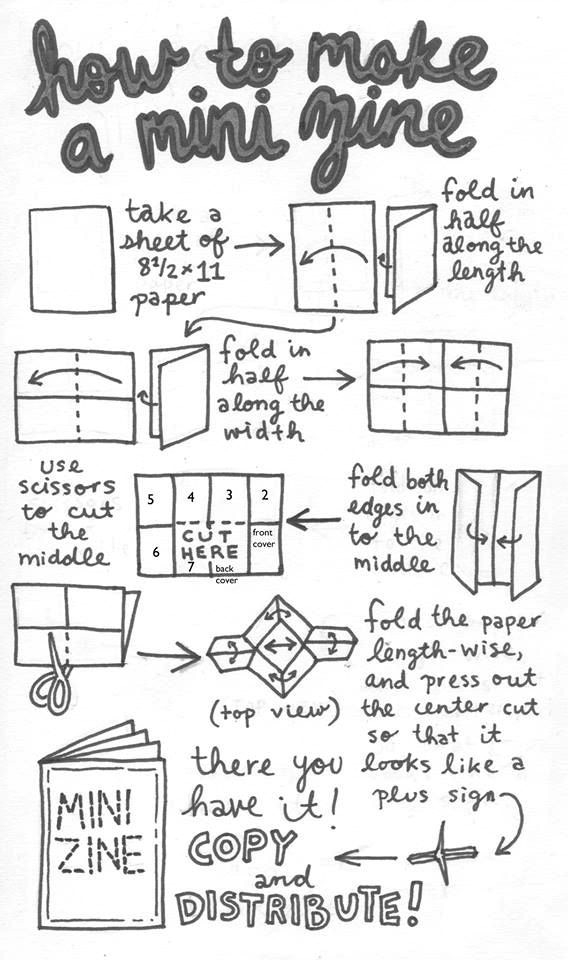 how to make
a mini zine
take a
sheet of
8 1/2 × 11
paper
fold in
half
along the
length
fold in
half
along the
width
fold both
edges in
to the
middle
use
scissors
to cut
the
middle
5 4 3 2
CUT
HERE
6
7
front
cover
back
cover
(top view)
fold the paper
length-wise,
and press out
the center cut
so that it
looks like a
plus sign
there you
have it!
COPY
and
DISTRIBUTE!
MINI
ZINE